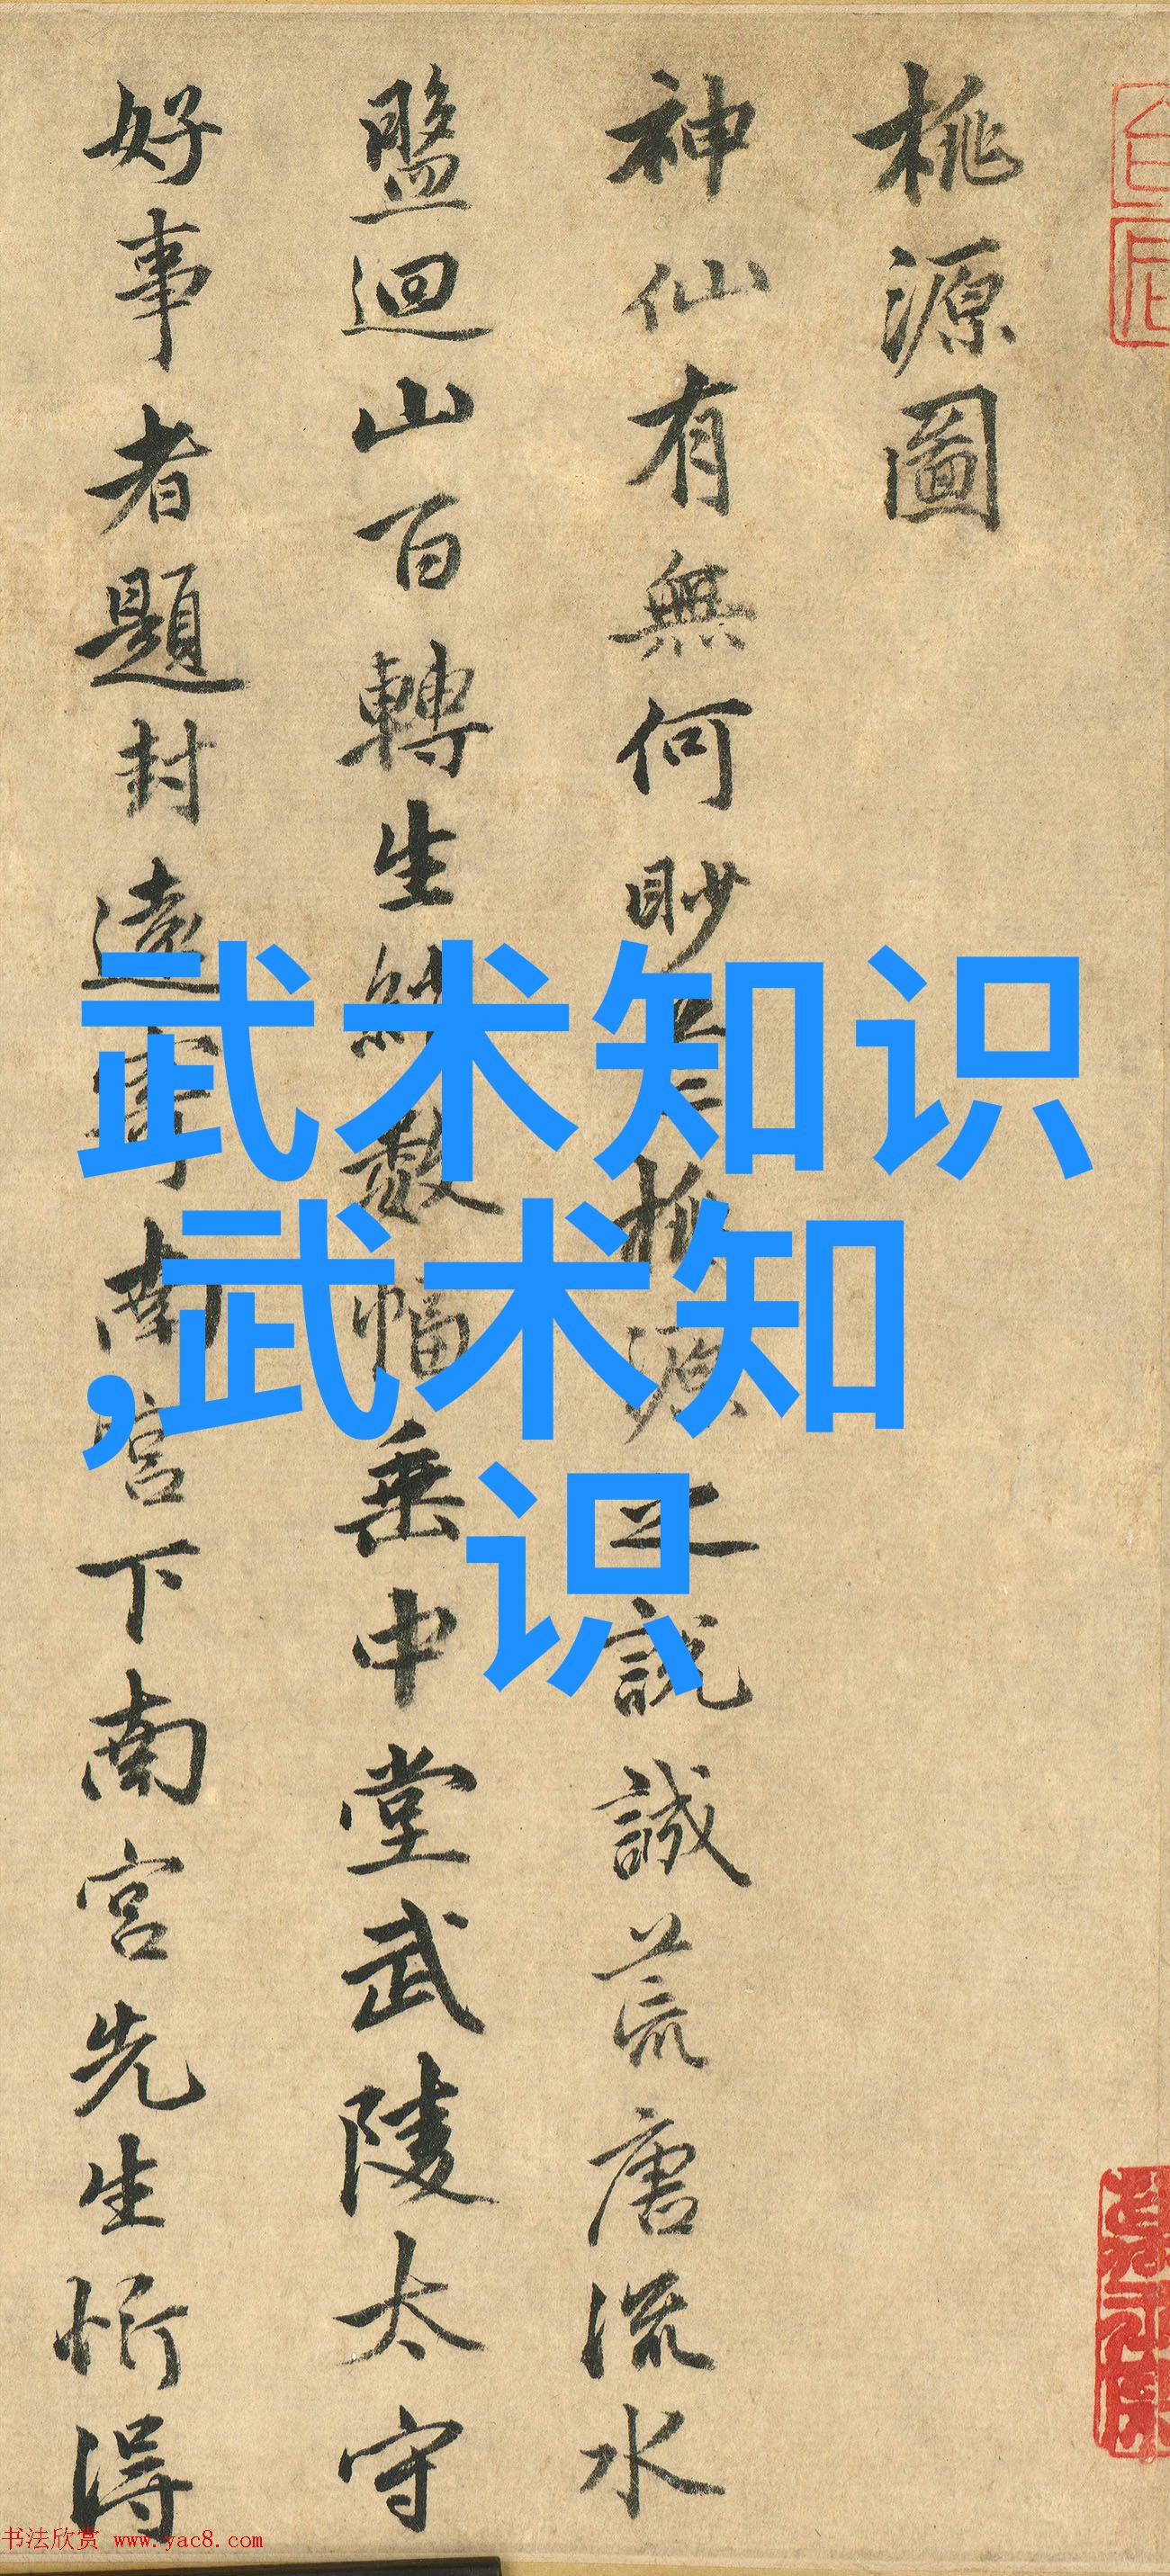 桃源圖
神仙有無何眇芒桃源之說誠荒唐流水
盤迴山百轉生綃數幅垂中堂武陵太守
好事者題封遠寄南宮下南宮先生忻得
武术知识
,武术知
识
书法欣赏 www.yac8.com